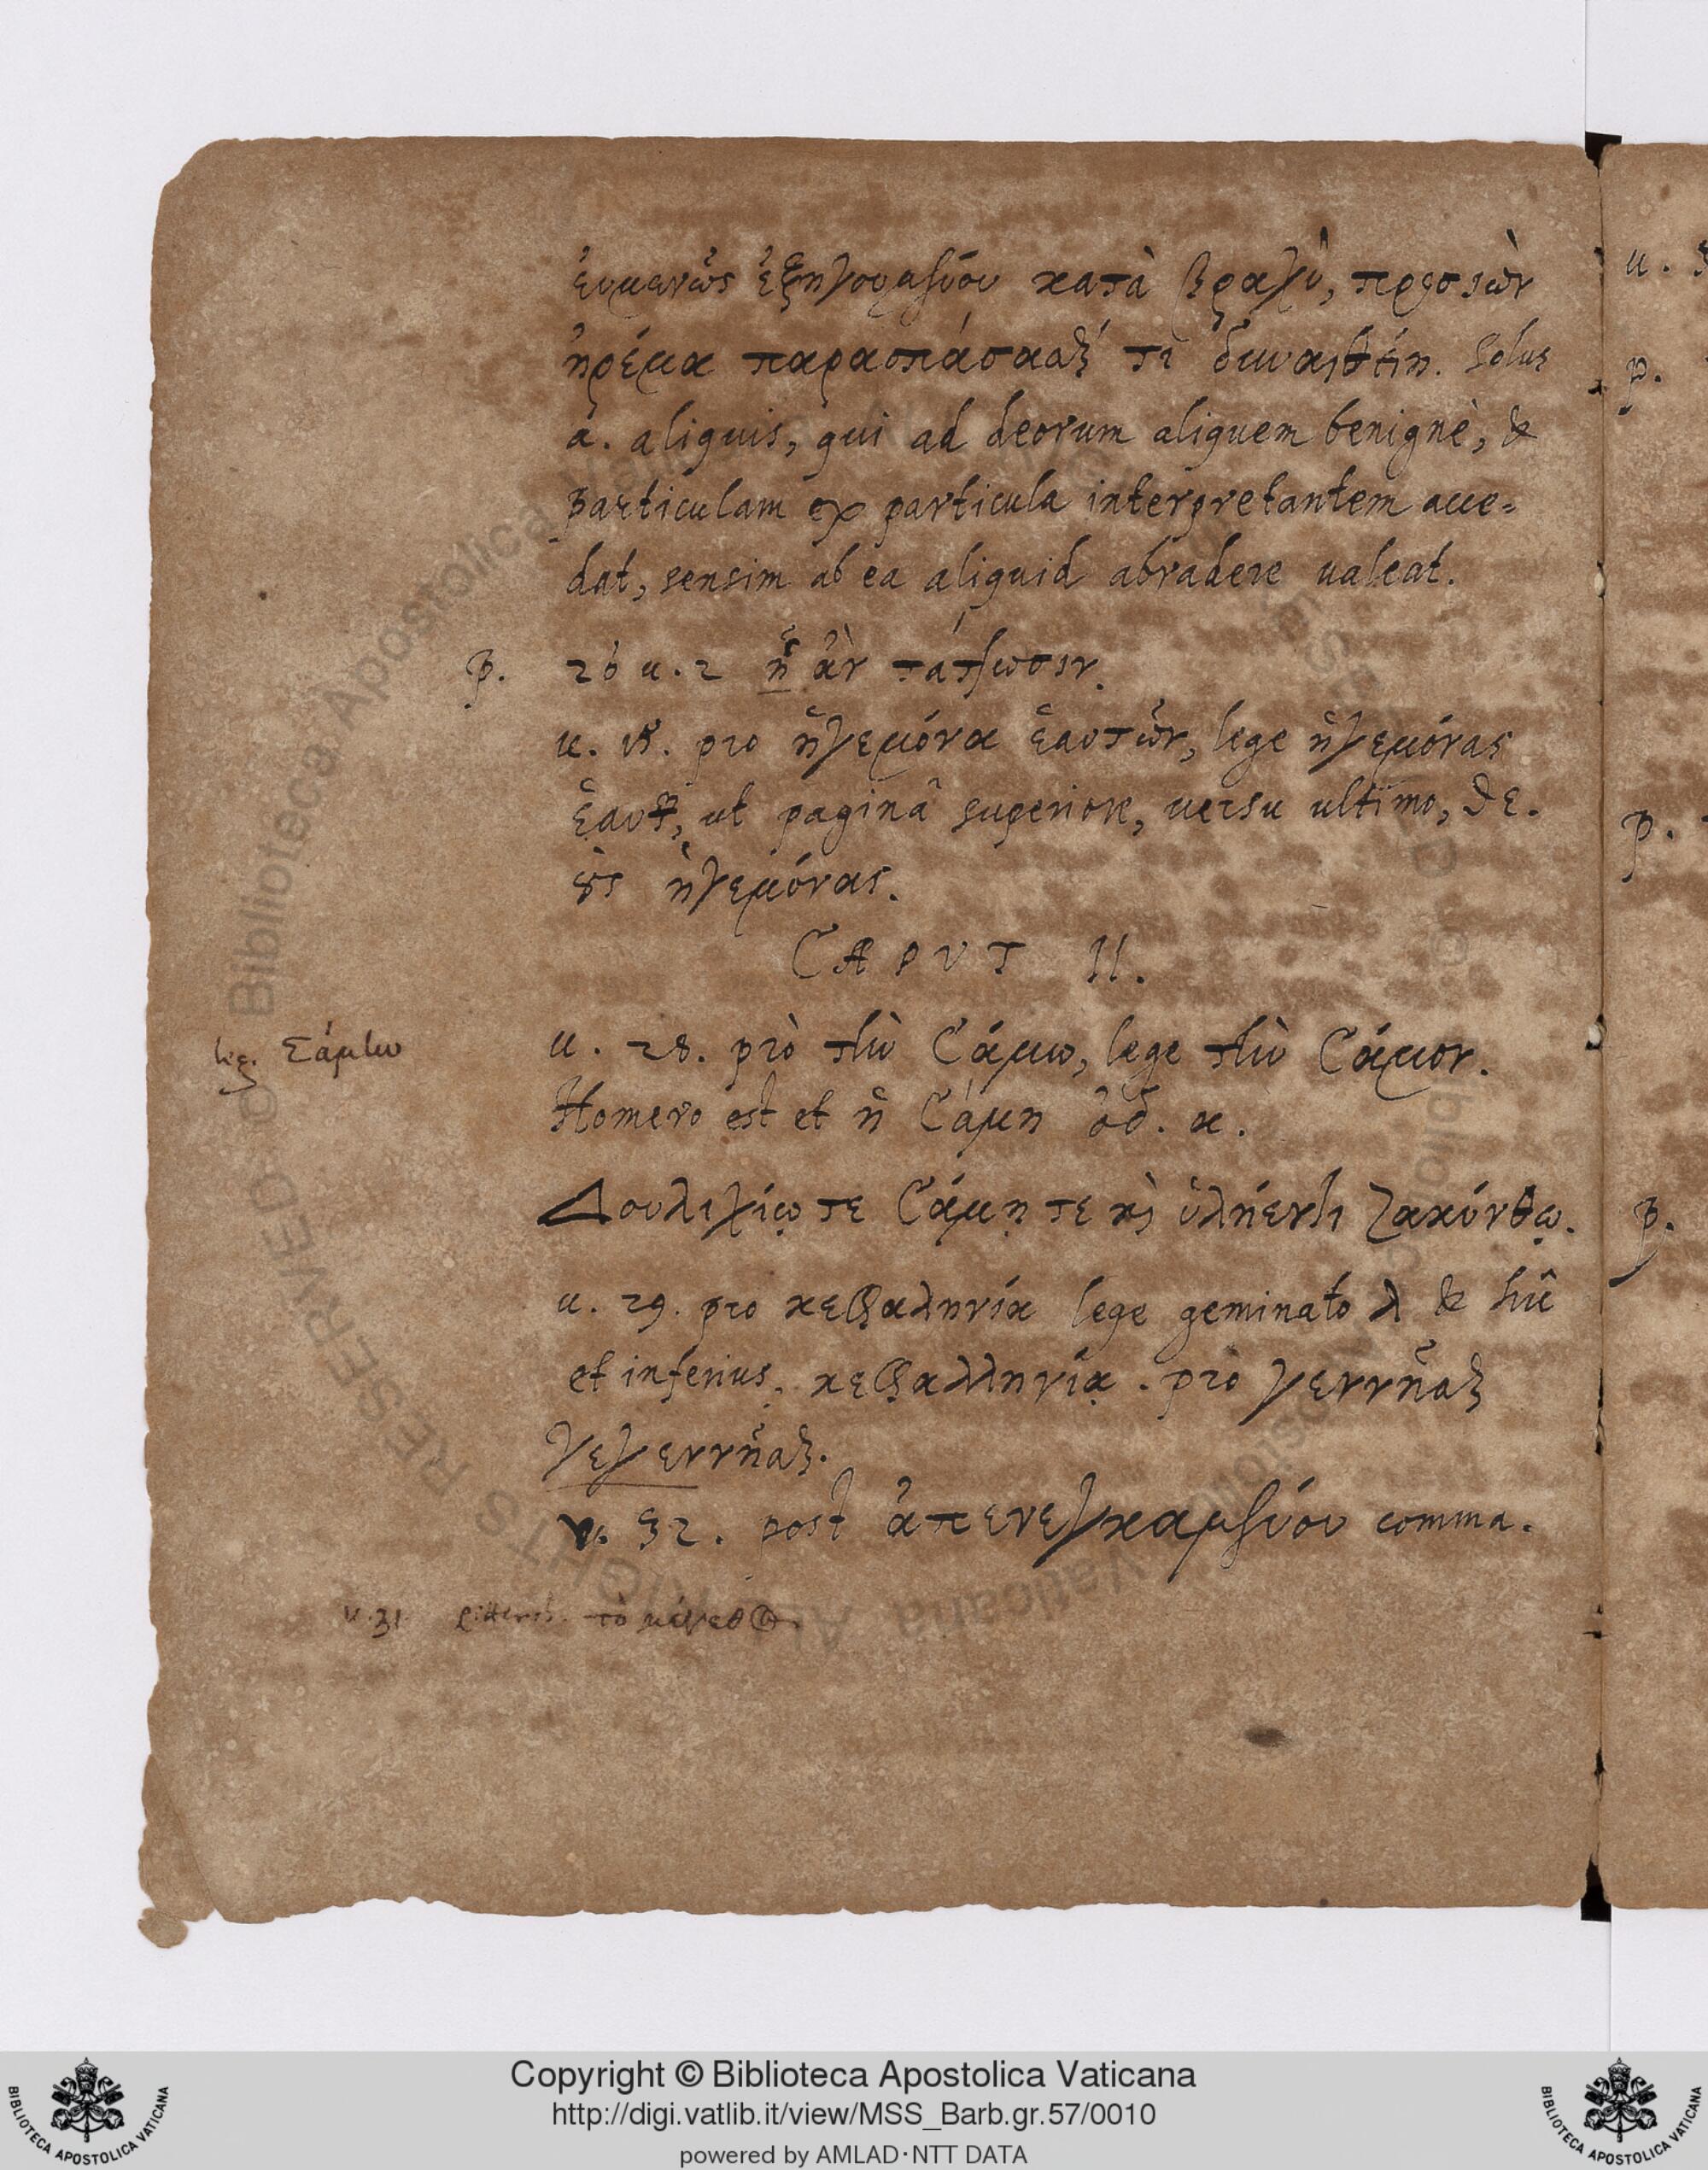 εὐμενῶς ἐξηγουμένου κατὰ βραχὺ, προσιὼν
ἠρέμα παρασπάσασθαί τι δυναίη. Solus
a. aliquis, qui ad deorum aliquem benignè, &
particulam ex particula interpretantem acce=
dat, sensim ab ea aliquid abradere ualeat.
p. 26 u. 2 ᾗ ἂν τάττωσιν.
u. 18. pro ἡγεμόνα ἑαυτῶν, lege ἡγεμόνας
ἑαυτῶν, ut paginâ superiore, uersu ultimo, δε.
οὓς ἡγεμόνας.
CAPVT II.
u. 28. prò τὴν Σάμω, lege τὴν Σάμον.
leg. Σάμην
Homero est et ἡ Σάμη ὀδ. α.
Δουλιχίῳ τε Σάμῃ τε καὶ ὑλήεντι Ζακύνθῳ.
u. 29. pro κεφαληνία lege geminato λ & hîc
et inferius, κεφαλληνίᾳ. pro γεννῆσαι
γεγεννῆσθαι.
v. 32. post ἀπενεγκαμένου comma.
v. 31. τὸ μέγεθος.
Copyright © Biblioteca Apostolica Vaticana
http://digi.vatlib.it/view/MSS_Barb.gr.57/0010
powered by AMLAD·NTT DATA